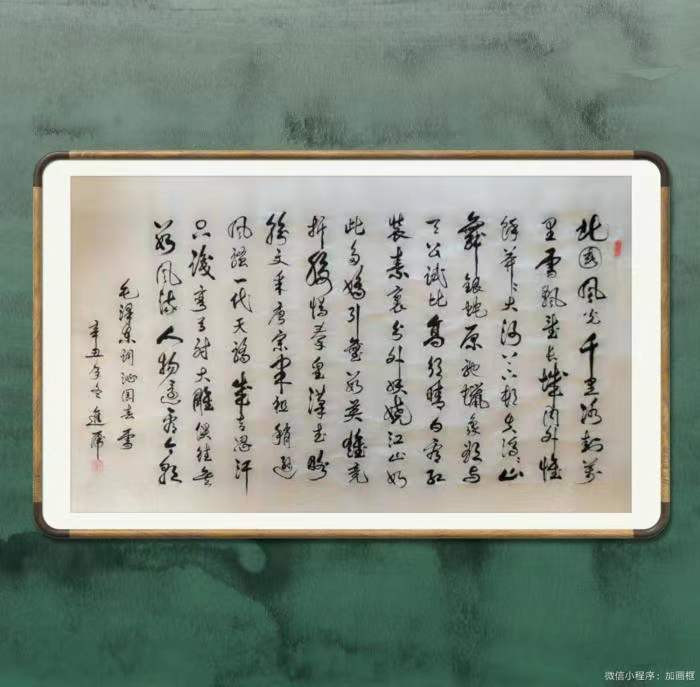 北國風光千里冰封萬
里雪飄望长城内外惟
餘莽〻大河上下顿失滔〻山
舞银蛇原驰蠟象欲与
天公试比高须晴日看红
装素裹分外妖娆江山如
此多娇引無数英雄竞
折腰惜秦皇漢武略
输文采唐宗宋祖稍逊
風骚一代天骄成吉思汗
只識弯弓射大雕俱往矣
数風流人物還看今朝
毛泽东词沁园春雪
辛丑年冬進
微信小程序：加画框